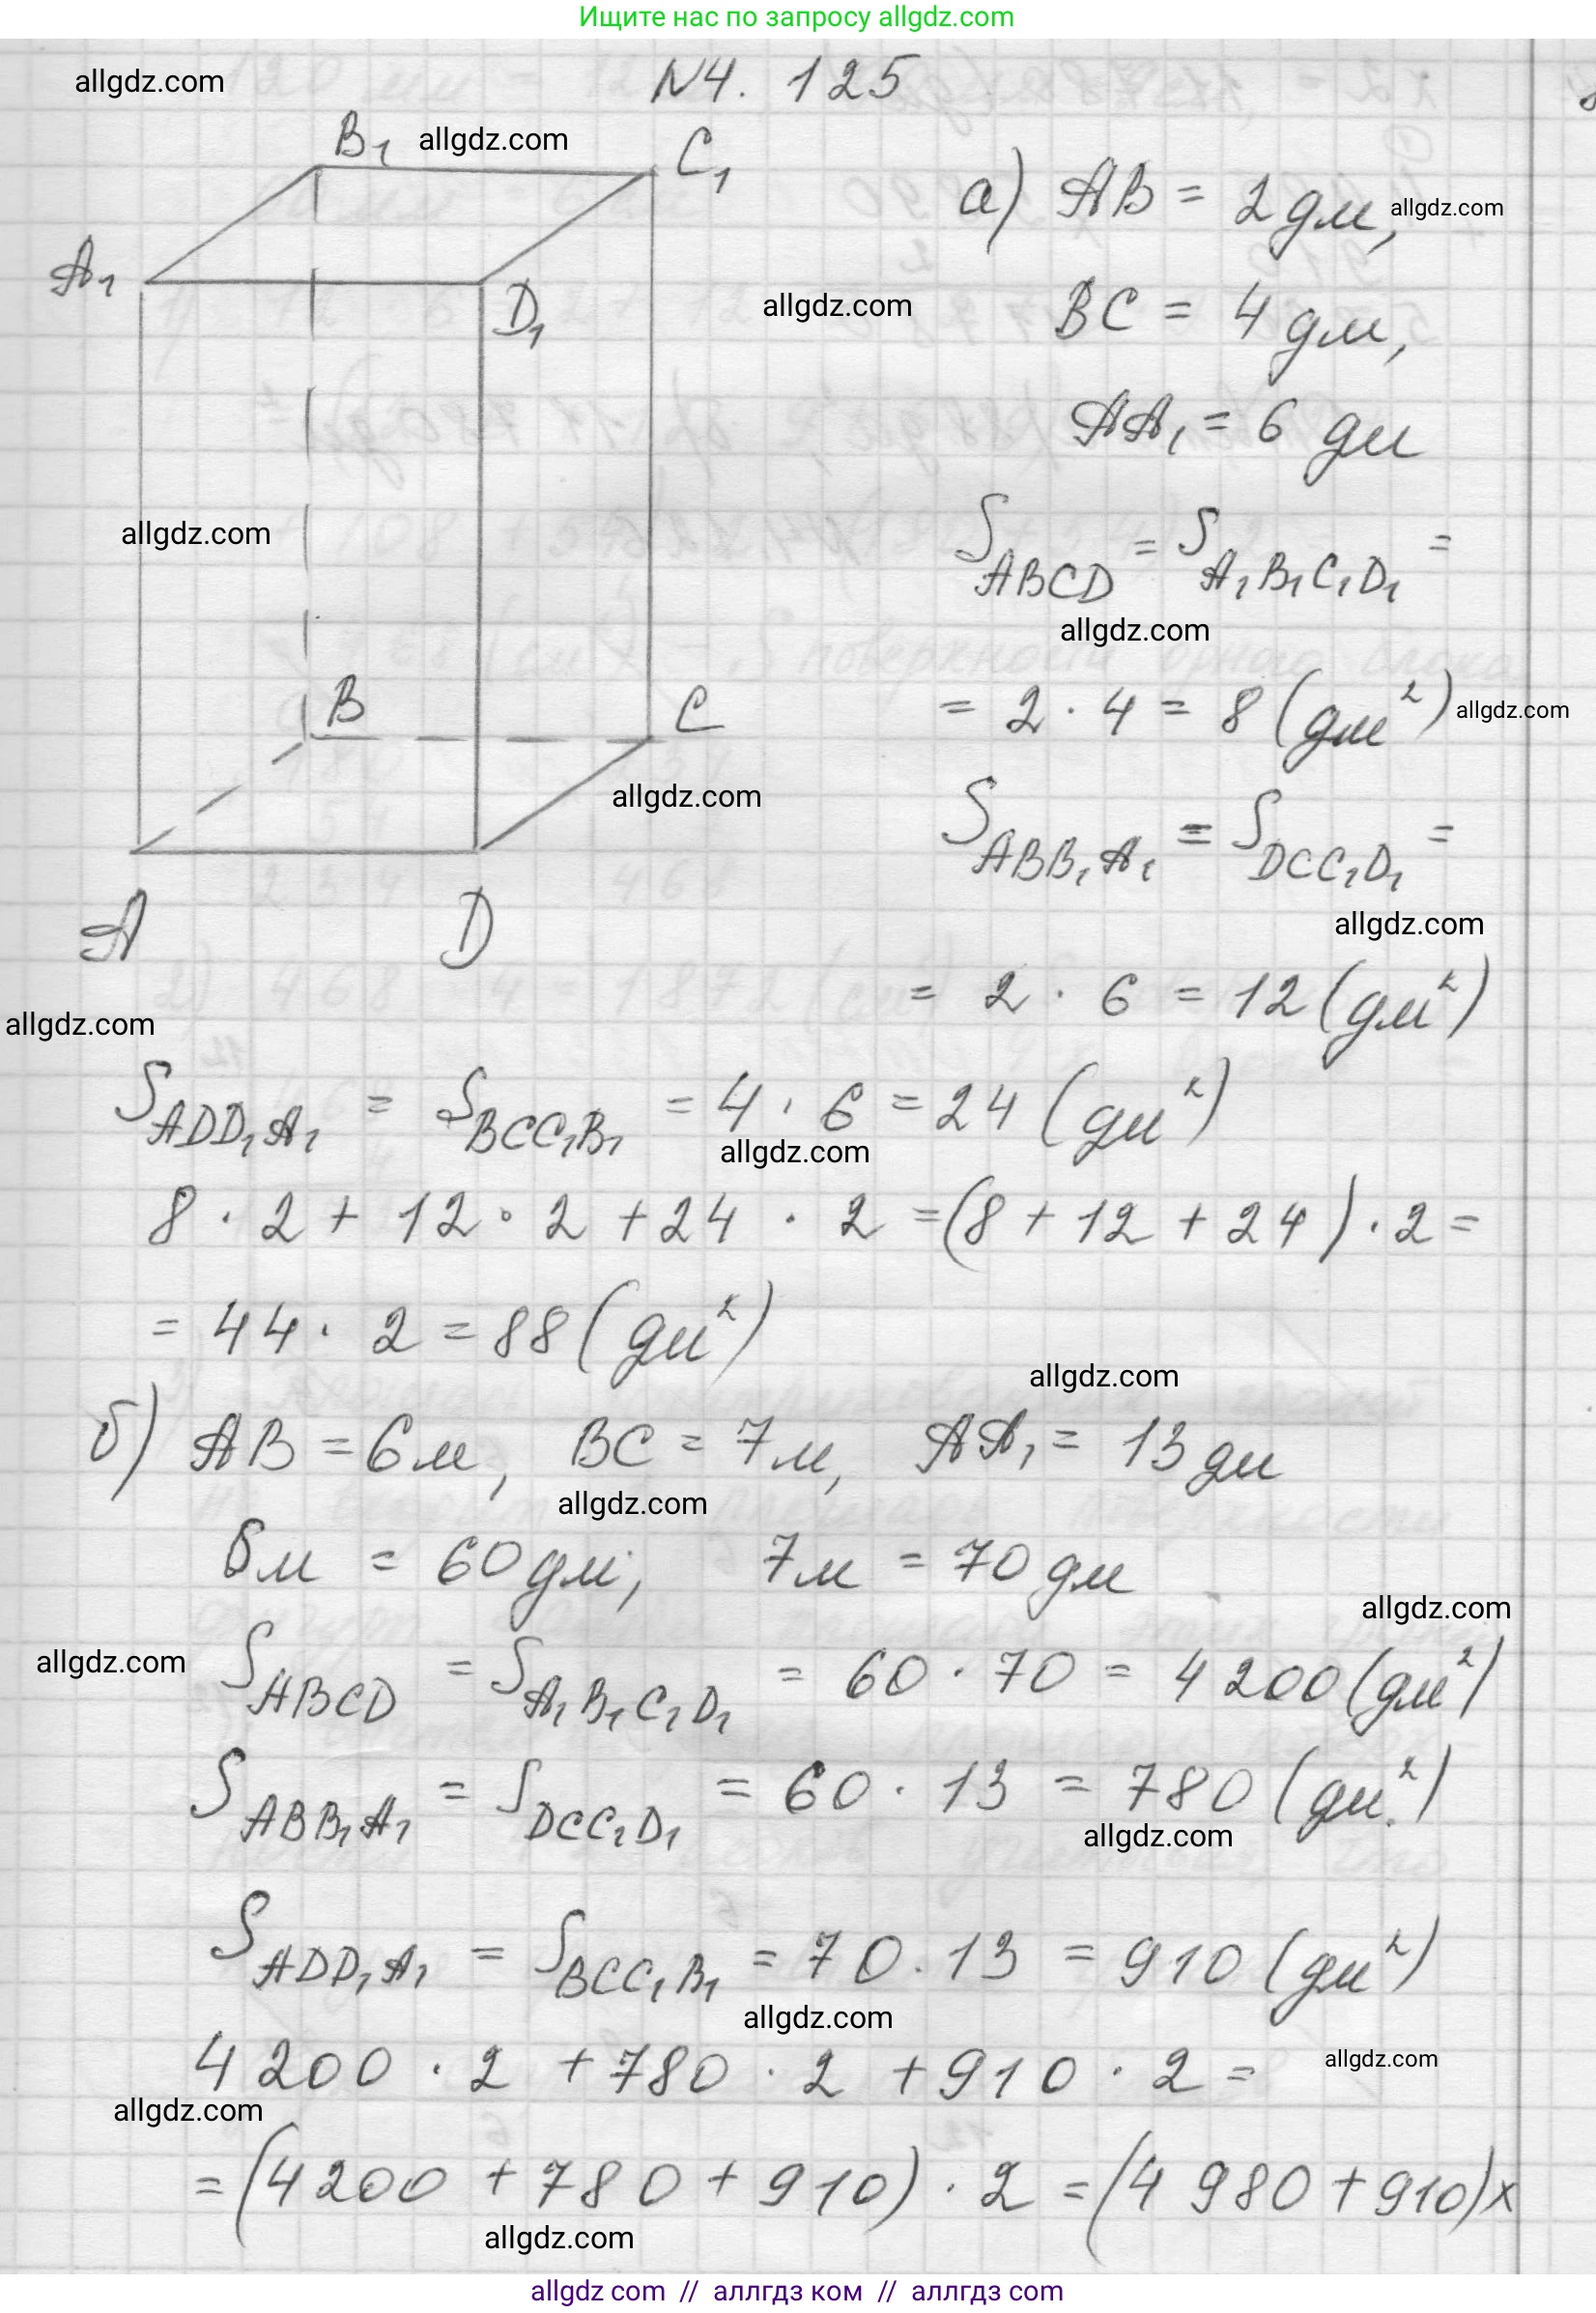 Ищите нас по запросу allgdz.com
allgdz.com
N4. 125
B₁ allgdz.com C₁
а) AB = 2 дм, allgdz.com
A₁ D₁
allgdz.com
BC = 4 дм,
AA₁ = 6 дм
allgdz.com
S ABCD = S A₁B₁C₁D₁ =
allgdz.com
B C
= 2 · 4 = 8 (дм²) allgdz.com
allgdz.com
S ABB₁A₁ = S DCC₁D₁ =
A D
allgdz.com
= 2 · 6 = 12 (дм²)
allgdz.com
S ADD₁A₁ = S BCC₁B₁ = 4 · 6 = 24 (дм²)
allgdz.com
8 · 2 + 12 · 2 + 24 · 2 = (8 + 12 + 24) · 2 =
= 44 · 2 = 88 (дм²)
allgdz.com
б) AB = 6 м, BC = 7 м, AA₁ = 13 дм
allgdz.com
6 м = 60 дм, 7 м = 70 дм
allgdz.com
allgdz.com
S ABCD = S A₁B₁C₁D₁ = 60 · 70 = 4 200 (дм²)
S ABB₁A₁ = S DCC₁D₁ = 60 · 13 = 780 (дм²)
allgdz.com
S ADD₁A₁ = S BCC₁B₁ = 70 · 13 = 910 (дм²)
allgdz.com
4 200 · 2 + 780 · 2 + 910 · 2 =
allgdz.com
allgdz.com
= (4 200 + 780 + 910) · 2 = (4 980 + 910) x
allgdz.com
allgdz com // аллгдз ком // аллгдз com